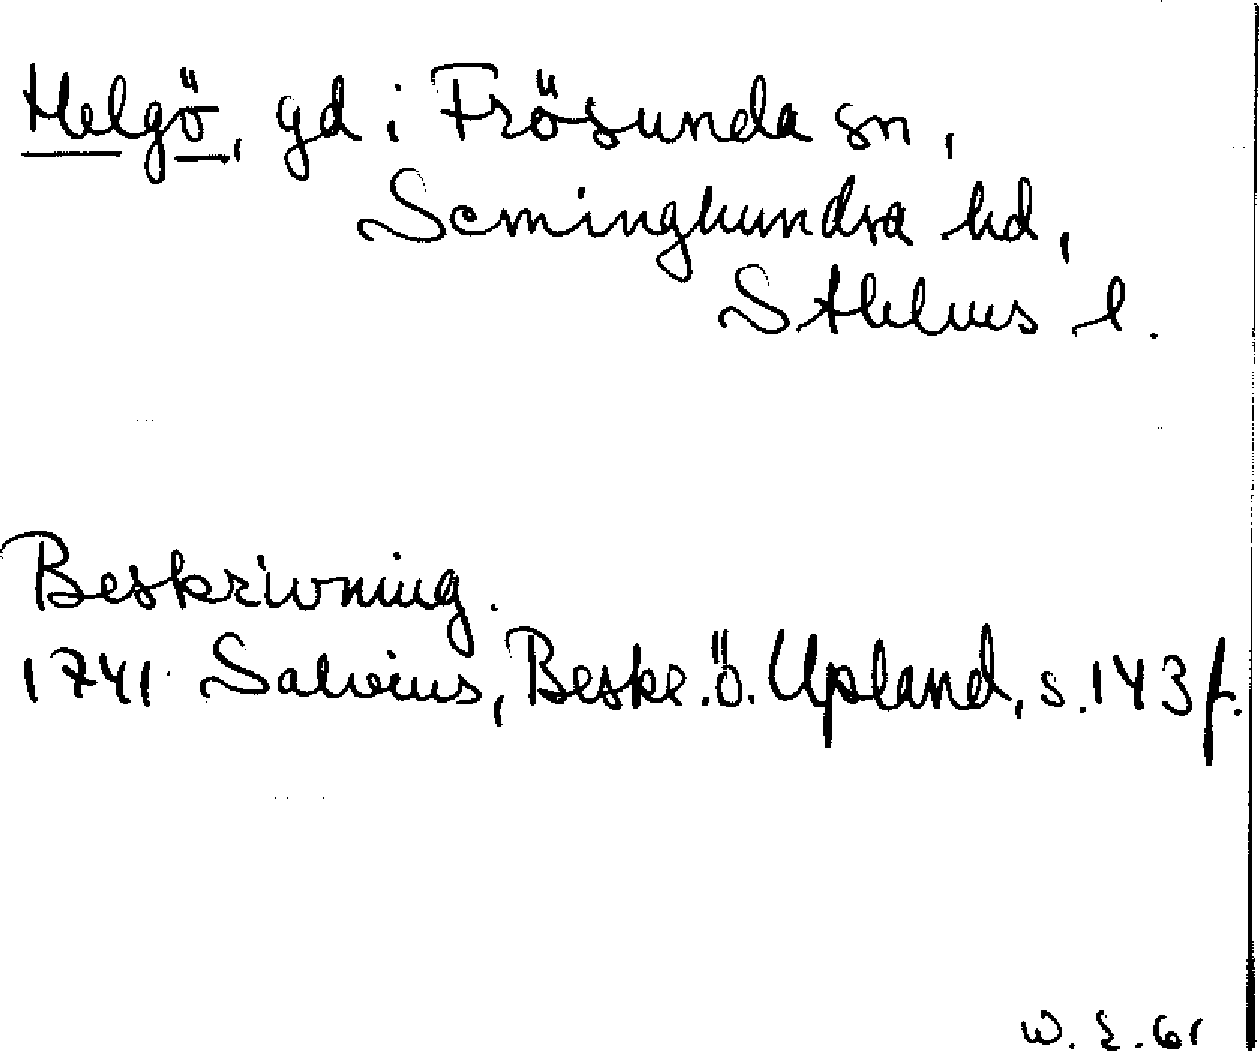 Helgö, gd i Frösunda sn,
Seminghundra hd,
Sthlms l.
Beskrivning.
1741. Salvius, Beskr. ö. Upland, s. 143 f.
W. E. 61